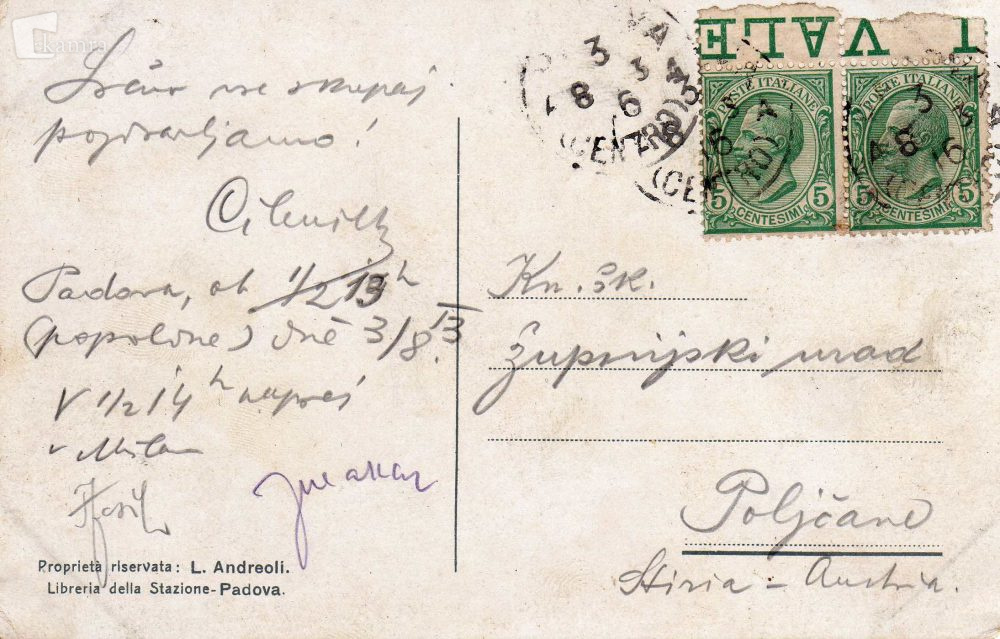 kamra
Srčno vse skupaj
pozdravljamo!
Padova, ob 1/2 13 h
(popoldne) dne 3/8. 13
V 1/2 14 h naprej
v Milan
Proprietà riservata: L. Andreoli.
Libreria della Stazione-Padova.
T VALE
POSTE ITALIANE
5 CENTESIMI 5
POSTE ITALIANE
5 CENTESIMI 5
(CENTRO)
(CENTRO)
Kn. šk.
Župnijski urad
Poljčane
Stiria - Austria.